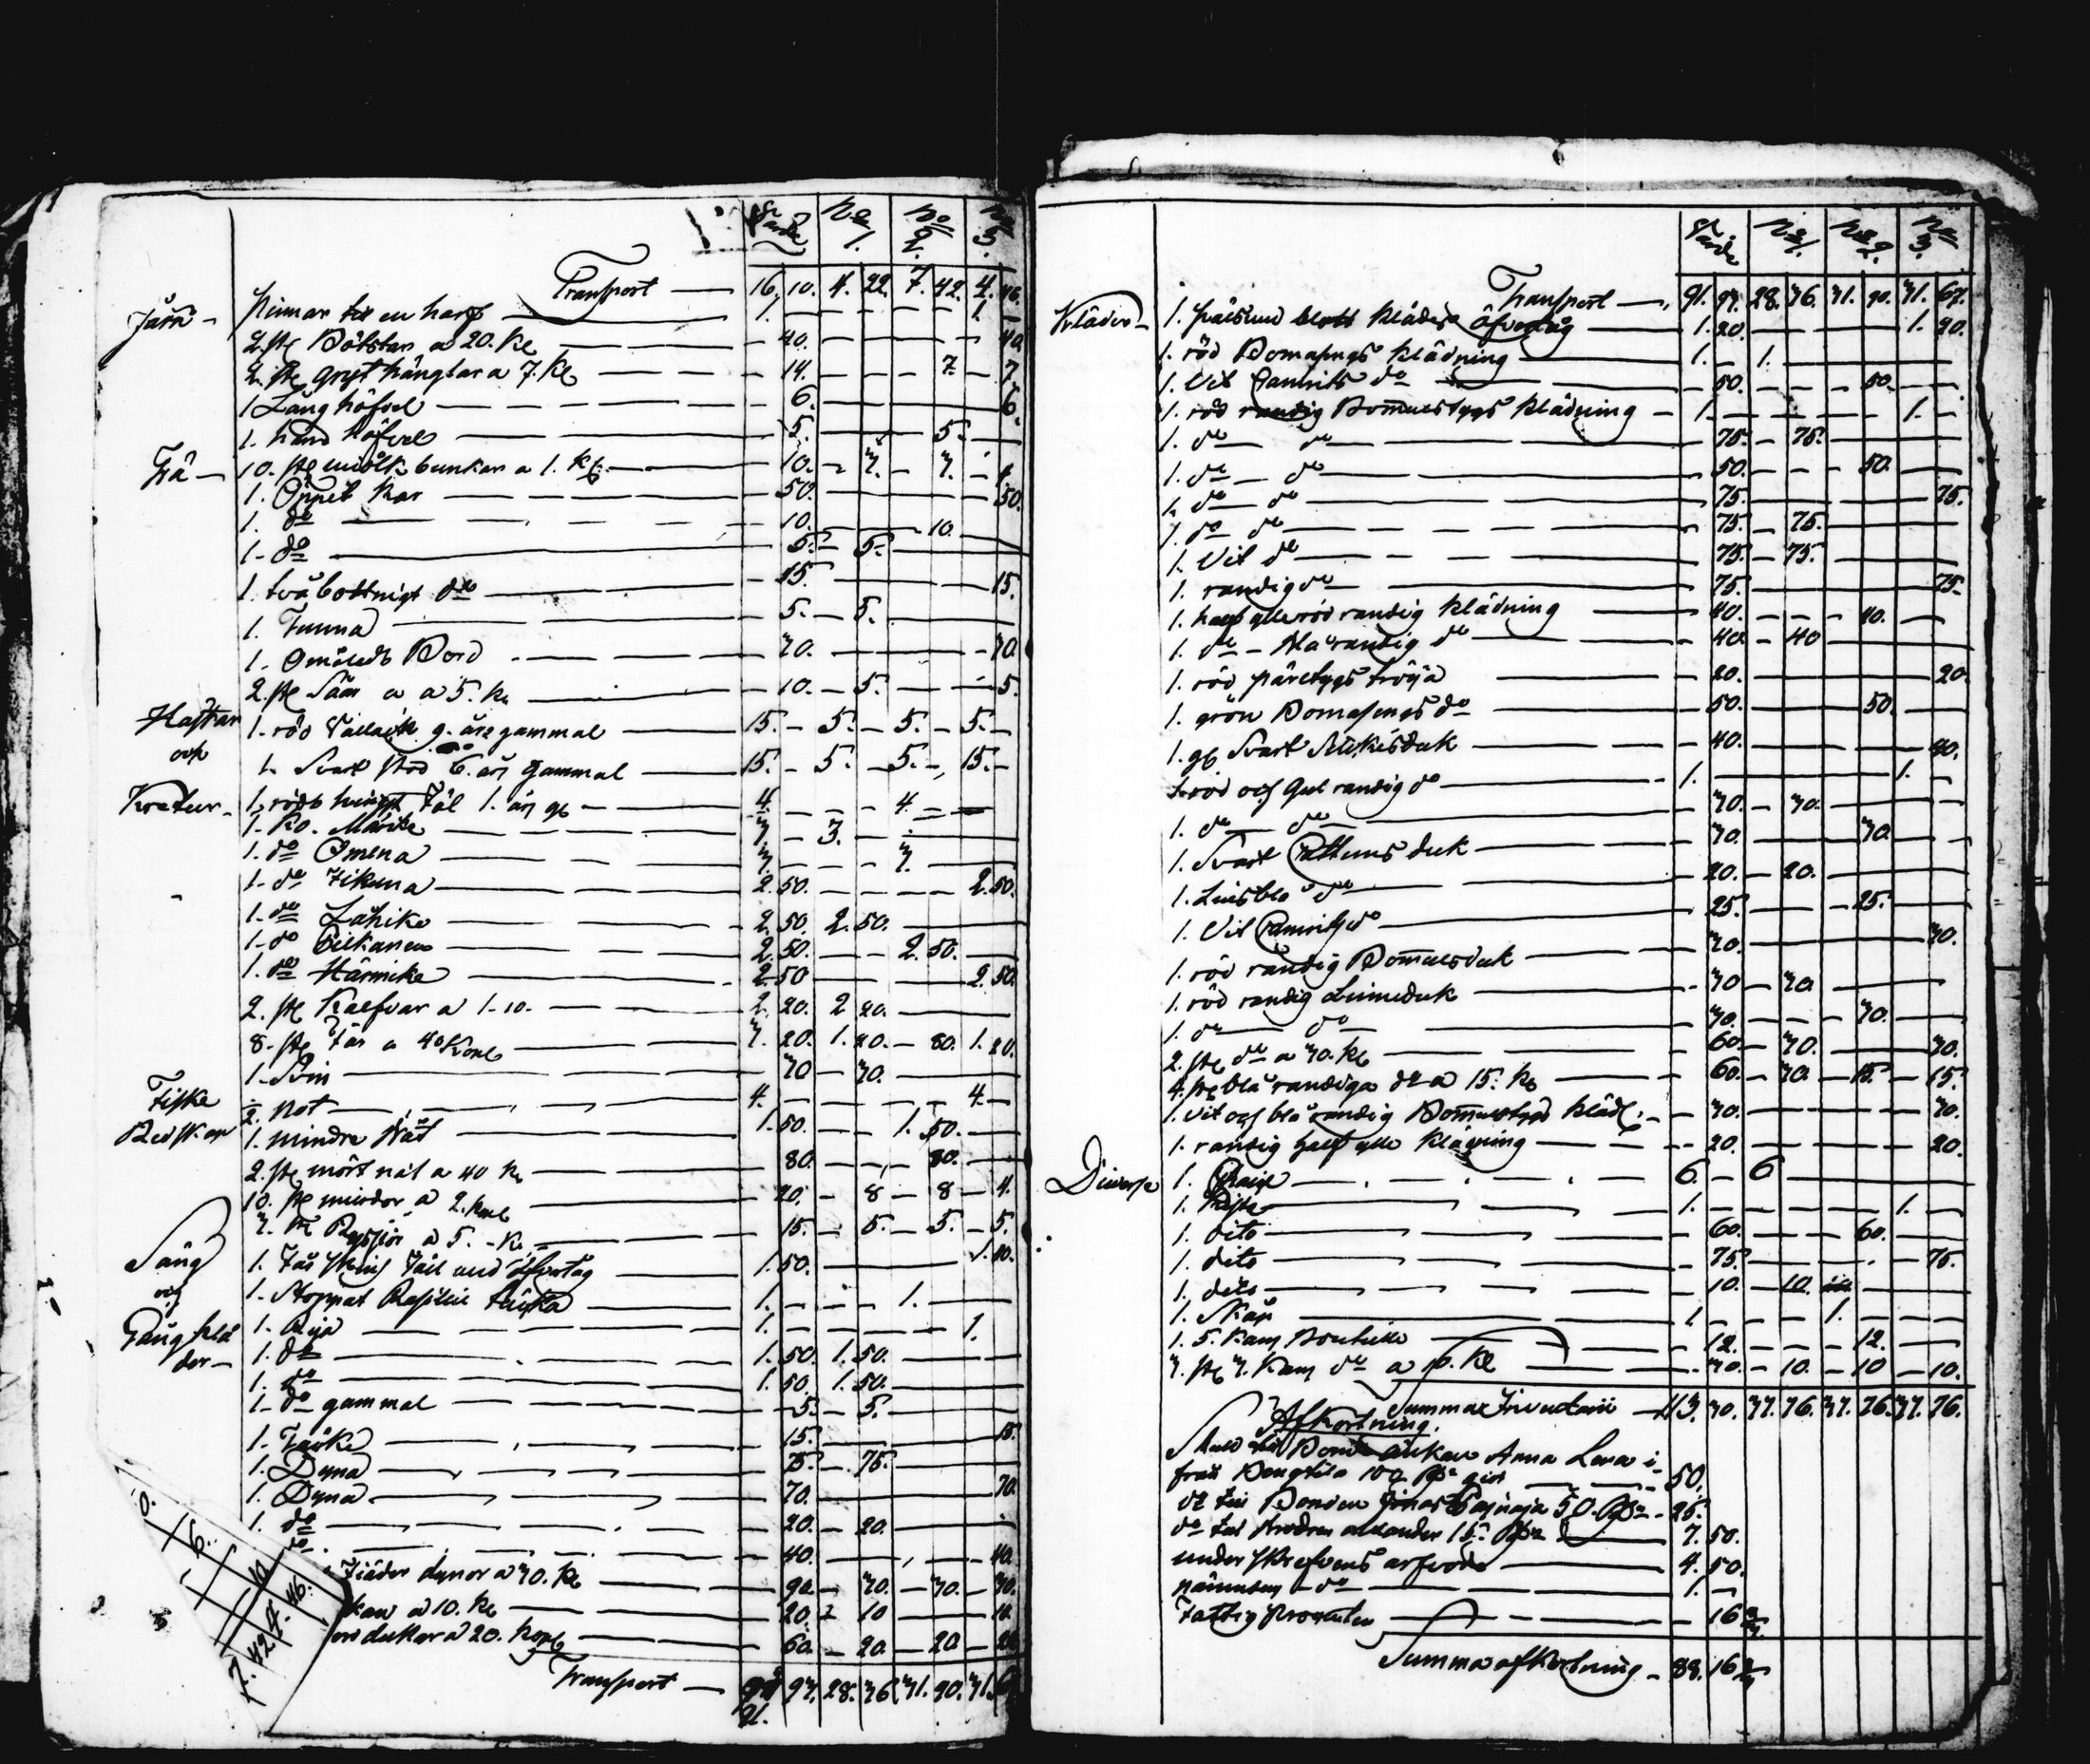 Värde No 1. No 2. No 3.
Transport — 16. 10. 4. 22. 7. 42. 4. 46.
Järn — Pinnar till en harf — 1. — 1. —
2. st Bötstar a 20. K — 40. — 40.
2. st grythänglar a 7. K — 14. — 7. — 7
1 Lång höfvel — 6. — 6.
1. hand höfvel — 5. — 5. —
Trä — 10. st miölkbunkar a 1. K — 10. — 3. — 3. — 4.
1. Öppet Kar — 50. — 50.
1. do — 10. — 10.
1. do — 5. — 5. —
1. tvåbottnigt do — 15. — 15.
1. Tunna — 5. — 5.
1. Omåladt Bord — 70. — 70.
2. st Såar a 5. K — 10. — 5. — 5.
Hästar och — 1. röd Vallack 9. års gammal — 15. — 5. — 5. — 5. —
1. Svart Stod 6. års gammal — 15. — 5. — 5. — 15. —
Kreatur — 1. rödt hingst Föl 1. års gl — 4. — 4. —
1. Ko. Mansike — 3. — 3. —
1. do Omena — 3. — 3. —
1. do Fikuna — 2. 50. — 2. 50.
1. do Lähike — 2. 50. 2. 50. —
1. do — 2. 50. — 2. 50. —
1. do Härmike — 2. 50 — 2. 50.
2. st Kalfvar a 1.10. — 2. 20. 2 20. —
8. st Får a 40 Kop — 3. 20. 1. 20. — 80. 1. 20.
1. Svin — 30 — 30. —
Fiske Redskap — 2. Not — 4. — 4. —
1. mindre Nät — 1. 50. — 1. 50. —
2. st mört nät a 40 K — 80. — 80. —
10. st mindre a 2. Kop — 20. — 8 — 8 — 4.
3. st Ryssjor a 5. K — 15. — 5. — 5. — 5.
Säng och Gångkläder — 1. Får Skins Fäll med öfvertåg — 1. 50. — 1. 50.
1. Stoppat täcke — 1. — 1. —
1. Rya — 1. — 1.
1. do — 1. 50. 1. 50. —
1. do — 1. 50. 1. 50. —
1. do gammal — 5. — 5. —
1. Täcke — 15. — 15.
1. Dyna — 75. — 75. —
1. Dyna — 70. — 70.
1. do — 20. — 20. —
do — 40. — 40.
Fiäder dynor a 30. K — 90. — 30. — 30. — 30.
a 10. K — 20. — 10 — 10.
dukar a 20. Kop — 60. — 20. — 20 — 20
Transport — 91. 97. 28. 36 31. 90. 31.
7. 42 4. 46.
Värde No 1. No 2. No 3.
Transport — 91. 97. 28. 36. 31. 90. 31. 67.
Kläder — 1. päls med blått Klädes öfvertåg — 1. 20. — 1. 20.
1. röd Bomasings Klädning — 1. — 1. —
1. Vit Camrits do — 50. — 50. —
1. röd randig Bomulstygs Klädning — 1. — 1. —
1. do do — 75. — 75. —
1. do do — 50. — 50. —
1. do do — 75. — 75.
1. do do — 75. — 75. —
1. Vit do — 75. — 75. —
1. randig do — 75. — 75.
1. half ylle röd randig Klädning — 40. — 40. —
1. do blårandig do — 40 — 40 —
1. röd tröja — 20. — 20.
1. grön Bomasings do — 50. — 50. —
1. gl Svart Silkisduk — 40. — 40.
1. röd och Gul randig do — 1. — 1. —
1. do do — 30. — 30. —
1. Svart Cattuns duk — 30. — 30.
1. Liusblå do — 20. — 20. —
1. Vit Camrits do — 25. — 25. —
1. röd randig Bomulsduk — 30. — 30.
1. röd randig Linneduk — 30 — 30 —
1. do do — 30. — 30. —
2. st do a 30. K — 60. — 30. — 30.
4. st blå randiga do a 15. K — 60. — 30. — 15. — 15.
1. vit och blå randig Bomulstygs Kläd — 30. — 30.
1. randig half ylle Klädning — 20. — 20.
Diverse — 1. Chais — 6. — 6
1. Kista — 1. — 1. —
1. dito — 60. — 60. —
1. dito — 75. — 75.
1. dito — 10. — 10. —
1. Skåp — 1 — 1. —
1. 5. Kans Boutelle — 12. — 12. —
3. st 3. Kans do a 10. K — 30. — 10. — 10 — 10.
Summa Inventarii — 113. 30. 37. 76. 37. 76. 37. 76.
Afkortning.
Skuld till Bonde änkan Anna Lena i
från 100 Rr — 50.
do till Bonden 50. Rr — 25.
do till 15. Rr — 7. 50.
underskrefvens arfvode — 4. 50.
nämndens do — 1. —
Fattig Procenten — 16 2/3
Summa afkortning — 88. 16 2/3